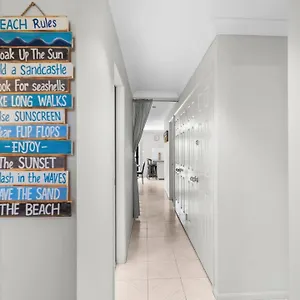 BEACH Rules
OAK UP The SUN
ld a SANDCASTLE
OOK For Seashells
KE LONG WALKS
Use SUNSCREEN
ear FLIP FLORS
-ENJOY-
The SUNSET
lash in the WAVES
AVE THE SAND
THE BEACH